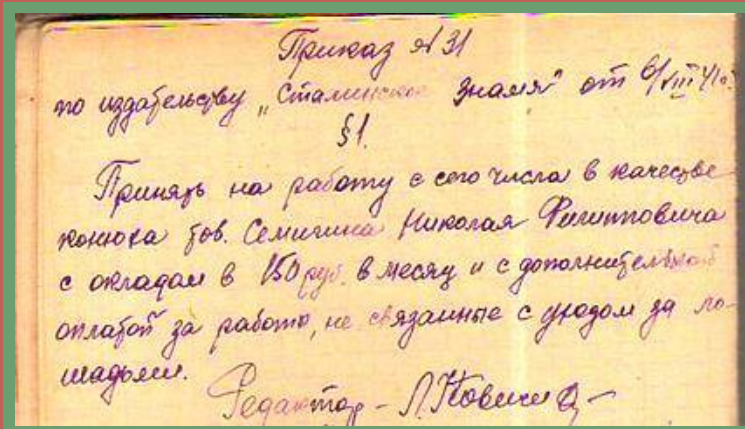 Приказ №31
по издательству „Сталинское знамя" от 6/VIII 41г.
§1.
Принять на работу с сего числа в качестве
конюха тов. Семигина Николая Филипповича
с окладом в 150 руб. в месяц и с дополнительной
оплатой за работы, не связанные с уходом за ло-
шадьми.
Редактор - Л.